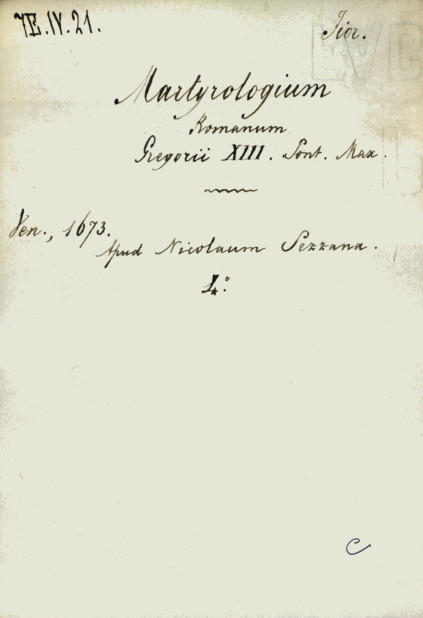 7E.IV.21.
Fior.
Martyrologium
Romanum
Gregorii XIII. Pont. Max.
Ven., 1673.
Apud Nicolaum Pezzana.
4°.
C